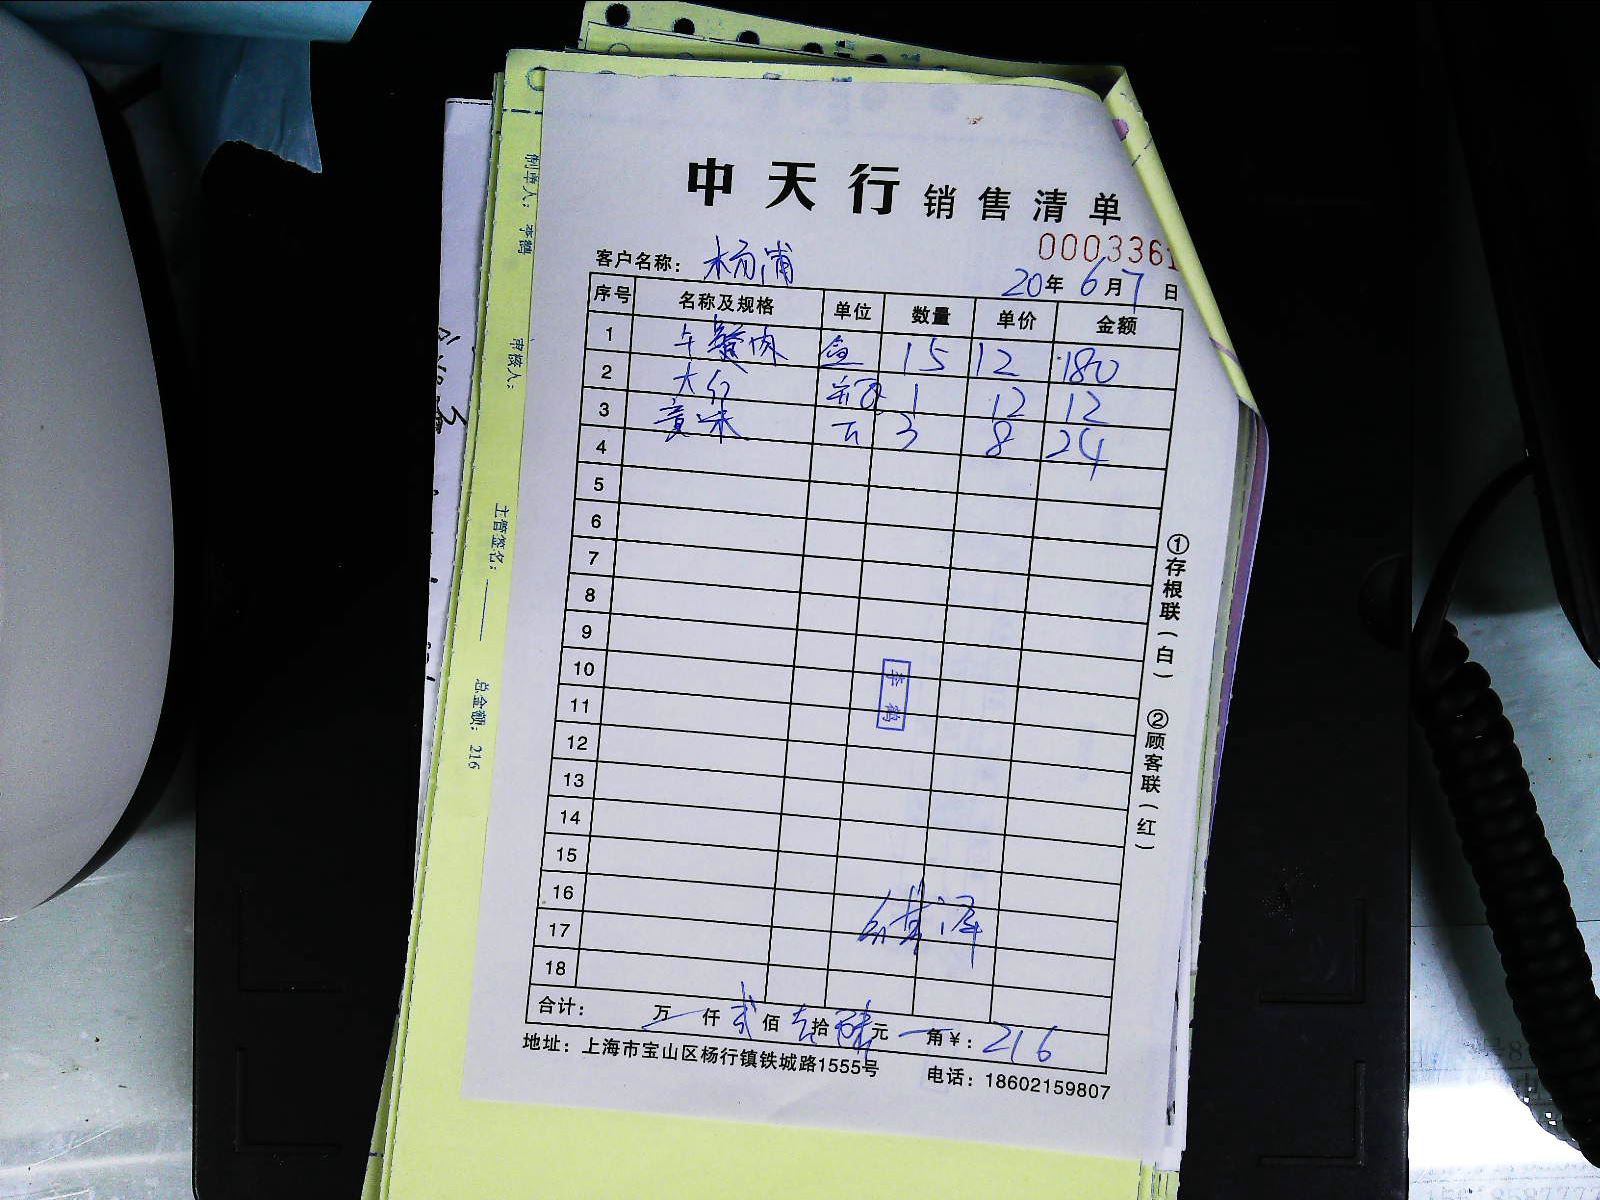 中天行 销售清单
0003361
客户名称: 杨浦 20年6月7日
序号 名称及规格 单位 数量 单价 金额
1 午餐肉 盒 15 12 180
2 大红 瓶 1 12 12
3 3 8 24
4
5
6
7
8
9
10
11
12
13
14
15
16
17
18
合计: 万 仟 贰 佰 壹 拾 陆 元 角 ¥: 216
地址: 上海市宝山区杨行镇铁城路1555号 电话: 18602159807
①存根联(白) ②顾客联(红)
李鹤
制单人: 李鹤
审核人:
主管签名:
总金额: 216